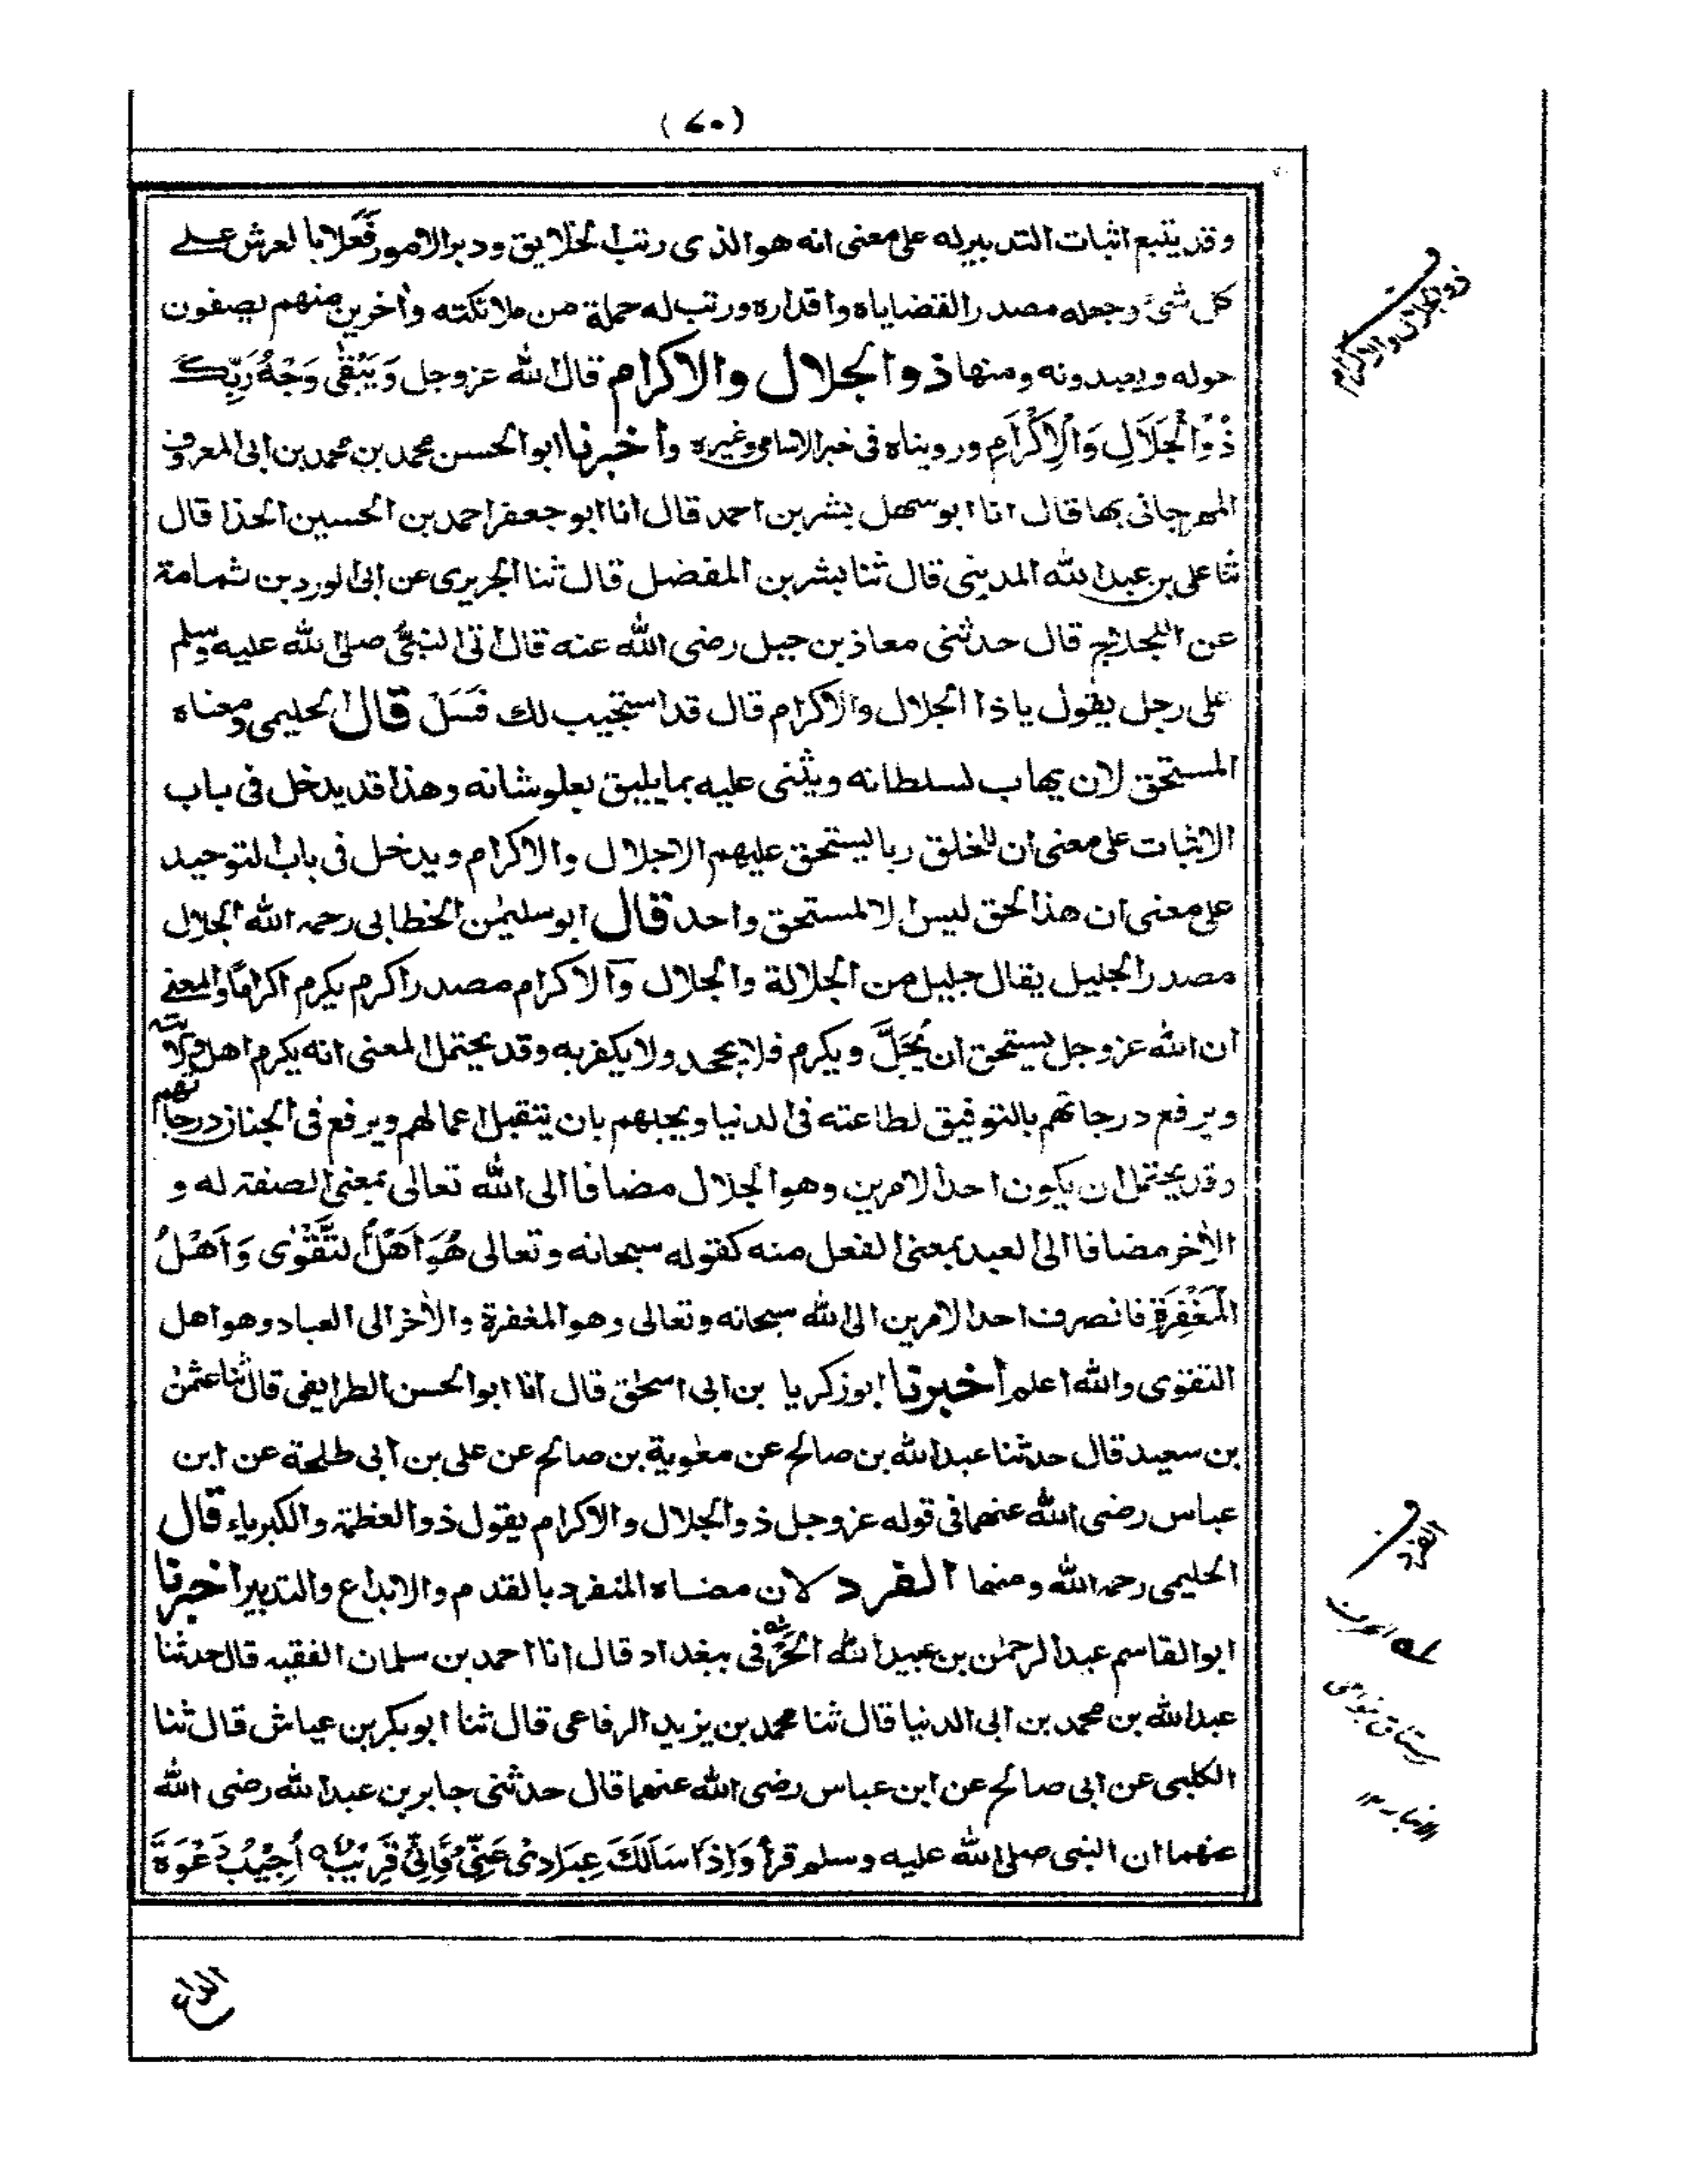 (٧٠)
وقد يتبع اثبات التدبير له على معنى انه هو الذى رتب الخلايق ودبر الامور فَعَلا بالعرش على
كل شئ وجعله مصدرا لقضاياه واقداره ورتب له حملة من ملائكته وأخرين منهم يصفون
حوله ويعبدونه ومنها ذو الجلال والاكرام قال الله عزوجل وَيَبْقٰى وَجْهُ رَبِّكَ
ذُو الْجَلَالِ وَالْاِكْرَامِ ورويناه فى خبر الاسامى وغيره وأخبرنا ابو الحسن محمد بن محمد بن ابى المعروف
المهرجانى بها قال انا ابو سهل بشر بن احمد قال انا ابو جعفر احمد بن الحسين الحذا قال
ثنا على بن عبد الله المدينى قال ثنا بشر بن المفضل قال ثنا الجريرى عن ابى الورد بن ثمامة
عن اللجلاج قال حدثنى معاذ بن جبل رضى الله عنه قال اتى النبىُّ صلى الله عليه وسلم
على رجل يقول يا ذا الجلال والاكرام قال قد استجيب لك فَسَلْ قال الحليمى ومعناه
المستحق لان يهاب لسلطانه ويثنى عليه بما يليق بعلو شانه وهذا قد يدخل فى باب
الاثبات على معنى ان للخلق ربا يستحق عليهم الاجلال والاكرام ويدخل فى باب التوحيد
على معنى ان هذا الحق ليس الا لمستحق واحد قال ابو سليمٰن الخطابى رحمه الله الجلال
مصدر الجليل يقال جليل من الجلالة والجلال والاكرام مصدر اكرم يكرم اكراما والمعنى
ان الله عزوجل يستحق ان يُجَلَّ ويكرم فلا يجحد ولا يكفر به وقد يحتمل المعنى انه يكرم اهل ولايته
ويرفع درجاتهم بالتوفيق لطاعته فى الدنيا ويجلهم بان يتقبل اعمالهم ويرفع فى الجنان درجاتهم
وقد يحتمل ان يكون احد الامرين وهو الجلال مضافا الى الله تعالى بمعنى الصفة له و
الأخر مضافا الى العبد بمعنى الفعل منه كقوله سبحانه وتعالى هُوَ اَهْلُ التَّقْوٰى وَاَهْلُ
الْمَغْفِرَةِ فانصرف احد الامرين الى الله سبحانه وتعالى وهو المغفرة والأخر الى العباد وهو اهل
التقوى والله اعلم أخبرنا ابو زكريا بن ابى اسحٰق قال انا ابو الحسن الطرايفى قال ثنا عثمٰن
بن سعيد قال حدثنا عبد الله بن صالح عن معٰوية بن صالح عن على بن ابى طلحة عن ابن
عباس رضى الله عنهما فى قوله عزوجل ذو الجلال والاكرام يقول ذو العظمة والكبرياء قال
الحليمى رحمه الله ومنها الفرد لان معناه المنفرد بالقدم والابداع والتدبير اخبرنا
ابو القاسم عبد الرحمٰن بن عبيد الله الحُرْفى ببغداد قال انا احمد بن سلمان الفقيه قال حدثنا
عبد الله بن محمد بن ابى الدنيا قال ثنا محمد بن يزيد الرفاعى قال ثنا ابو بكر بن عياش قال ثنا
الكلبى عن ابى صالح عن ابن عباس رضى الله عنهما قال حدثنى جابر بن عبد الله رضى الله
عنهما ان النبى صلى الله عليه وسلم قرأ وَاِذَا سَاَلَكَ عِبَادِىْ عَنِّىْ فَاِنِّىْ قَرِيْبٌ اُجِيْبُ دَعْوَةَ
ذو الجلال والاكرام
الفرد